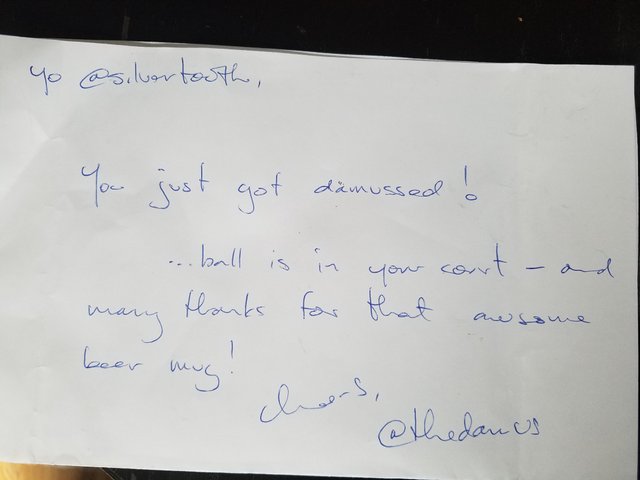 Yo @silvertooth,
You just got dämussed!
...ball is in your court – and
many thanks for that awesome
beer mug!
Cheers,
@thedamus